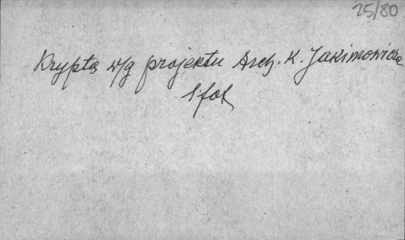 25/80
Krypta w/g projektu Arch. K. Jakimowicza
1 fot